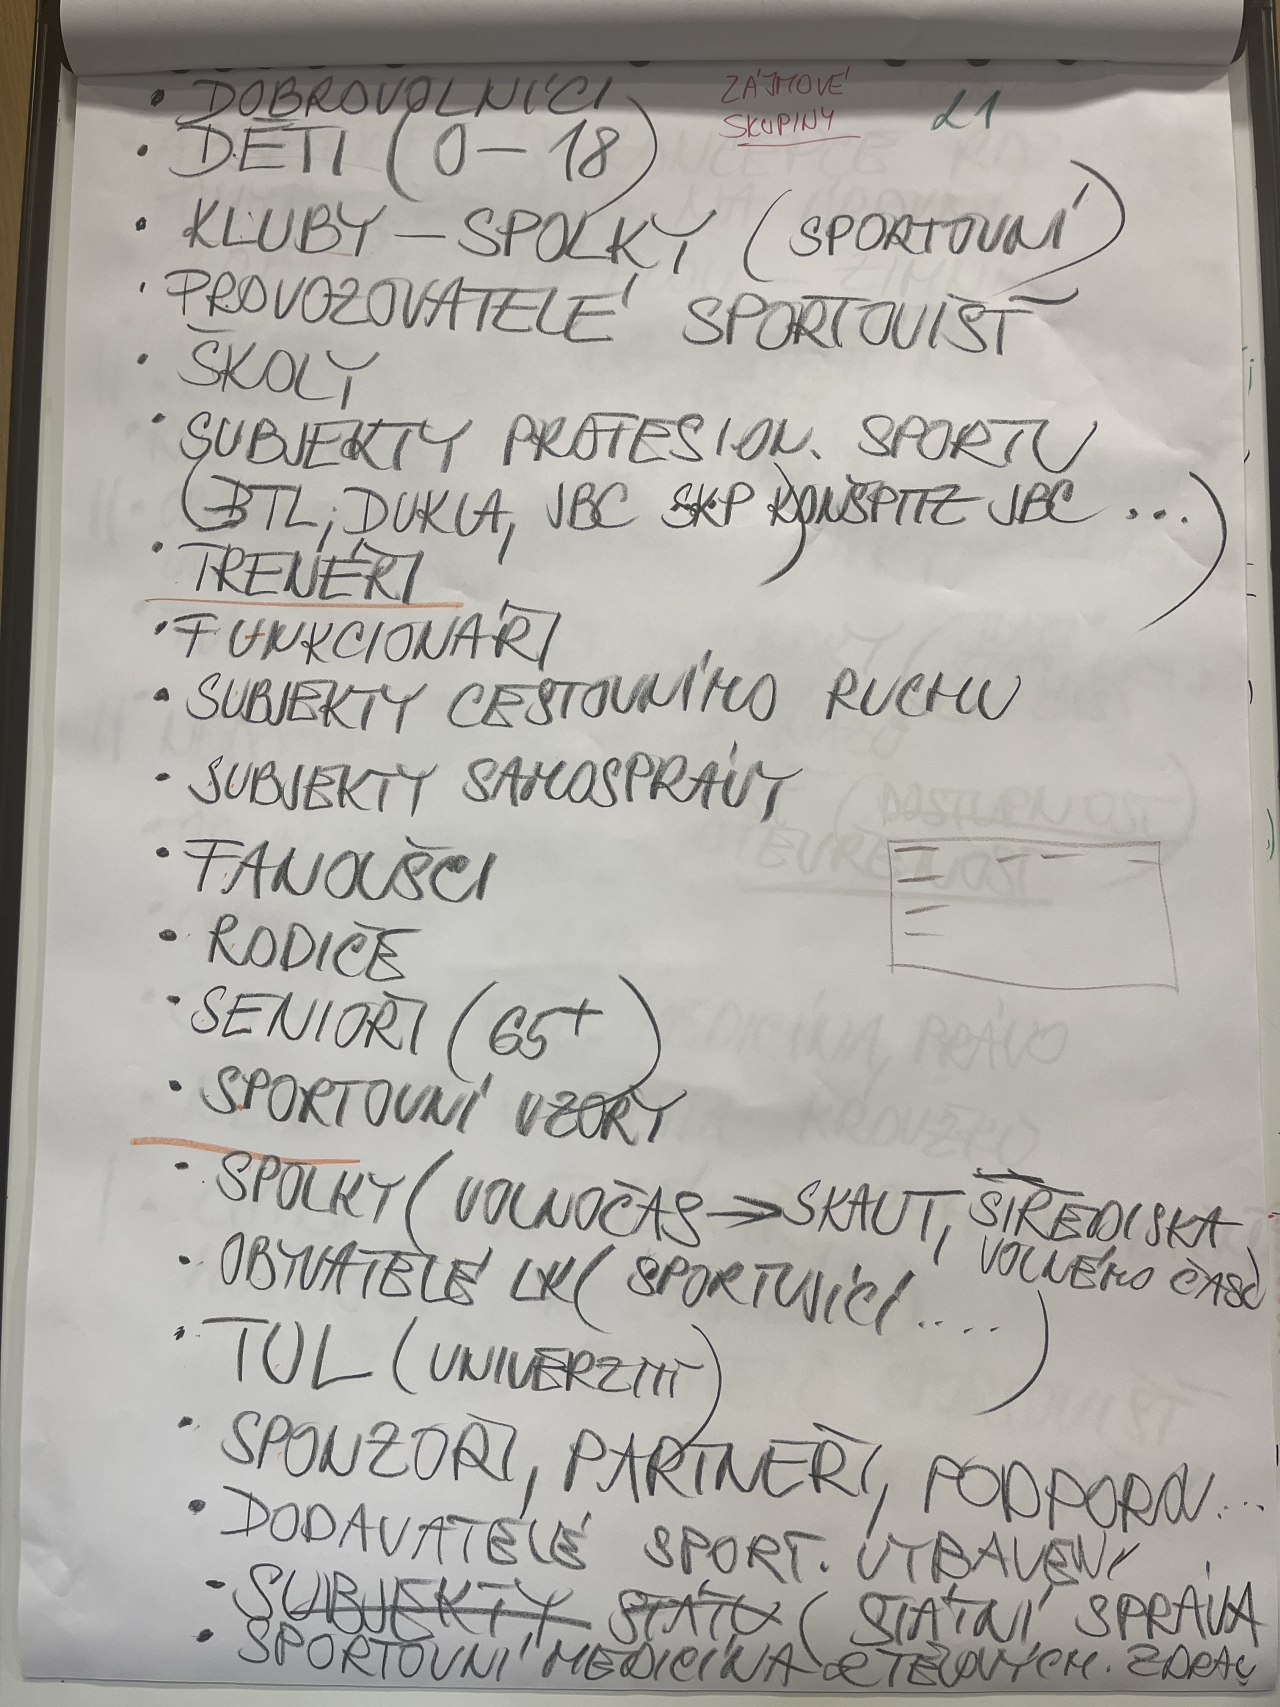 ZÁJMOVÉ
SKUPINY
21
• DOBROVOLNÍCI
• DĚTI (0 – 18)
• KLUBY – SPOLKY (SPORTOVNÍ)
• PROVOZOVATELÉ SPORTOVIŠŤ
• ŠKOLY
• SUBJEKTY PROFESION. SPORTU
(BTL, DUKLA, JBC SKP KONŠPITZ JBC ...)
• TRENÉŘI
• FUNKCIONÁŘI
• SUBJEKTY CESTOVNÍHO RUCHU
• SUBJEKTY SAMOSPRÁVY
• FANOUŠCI
• RODIČE
• SENIOŘI (65+)
• SPORTOVNÍ VZORY
• SPOLKY (VOLNOČAS → SKAUT, STŘEDISKA
VOLNÉHO ČASU)
• OBYVATELÉ LK (SPORTUJÍCÍ ....)
• TUL (UNIVERZIT)
• SPONZOŘI, PARTNEŘI, PODPOROV...
• DODAVATELÉ SPORT. VYBAVENÍ
• SUBJEKTY STÁTU (STÁTNÍ SPRÁVA
• SPORTOVNÍ MEDICÍNA TĚLOVÝCH. ZDRAV